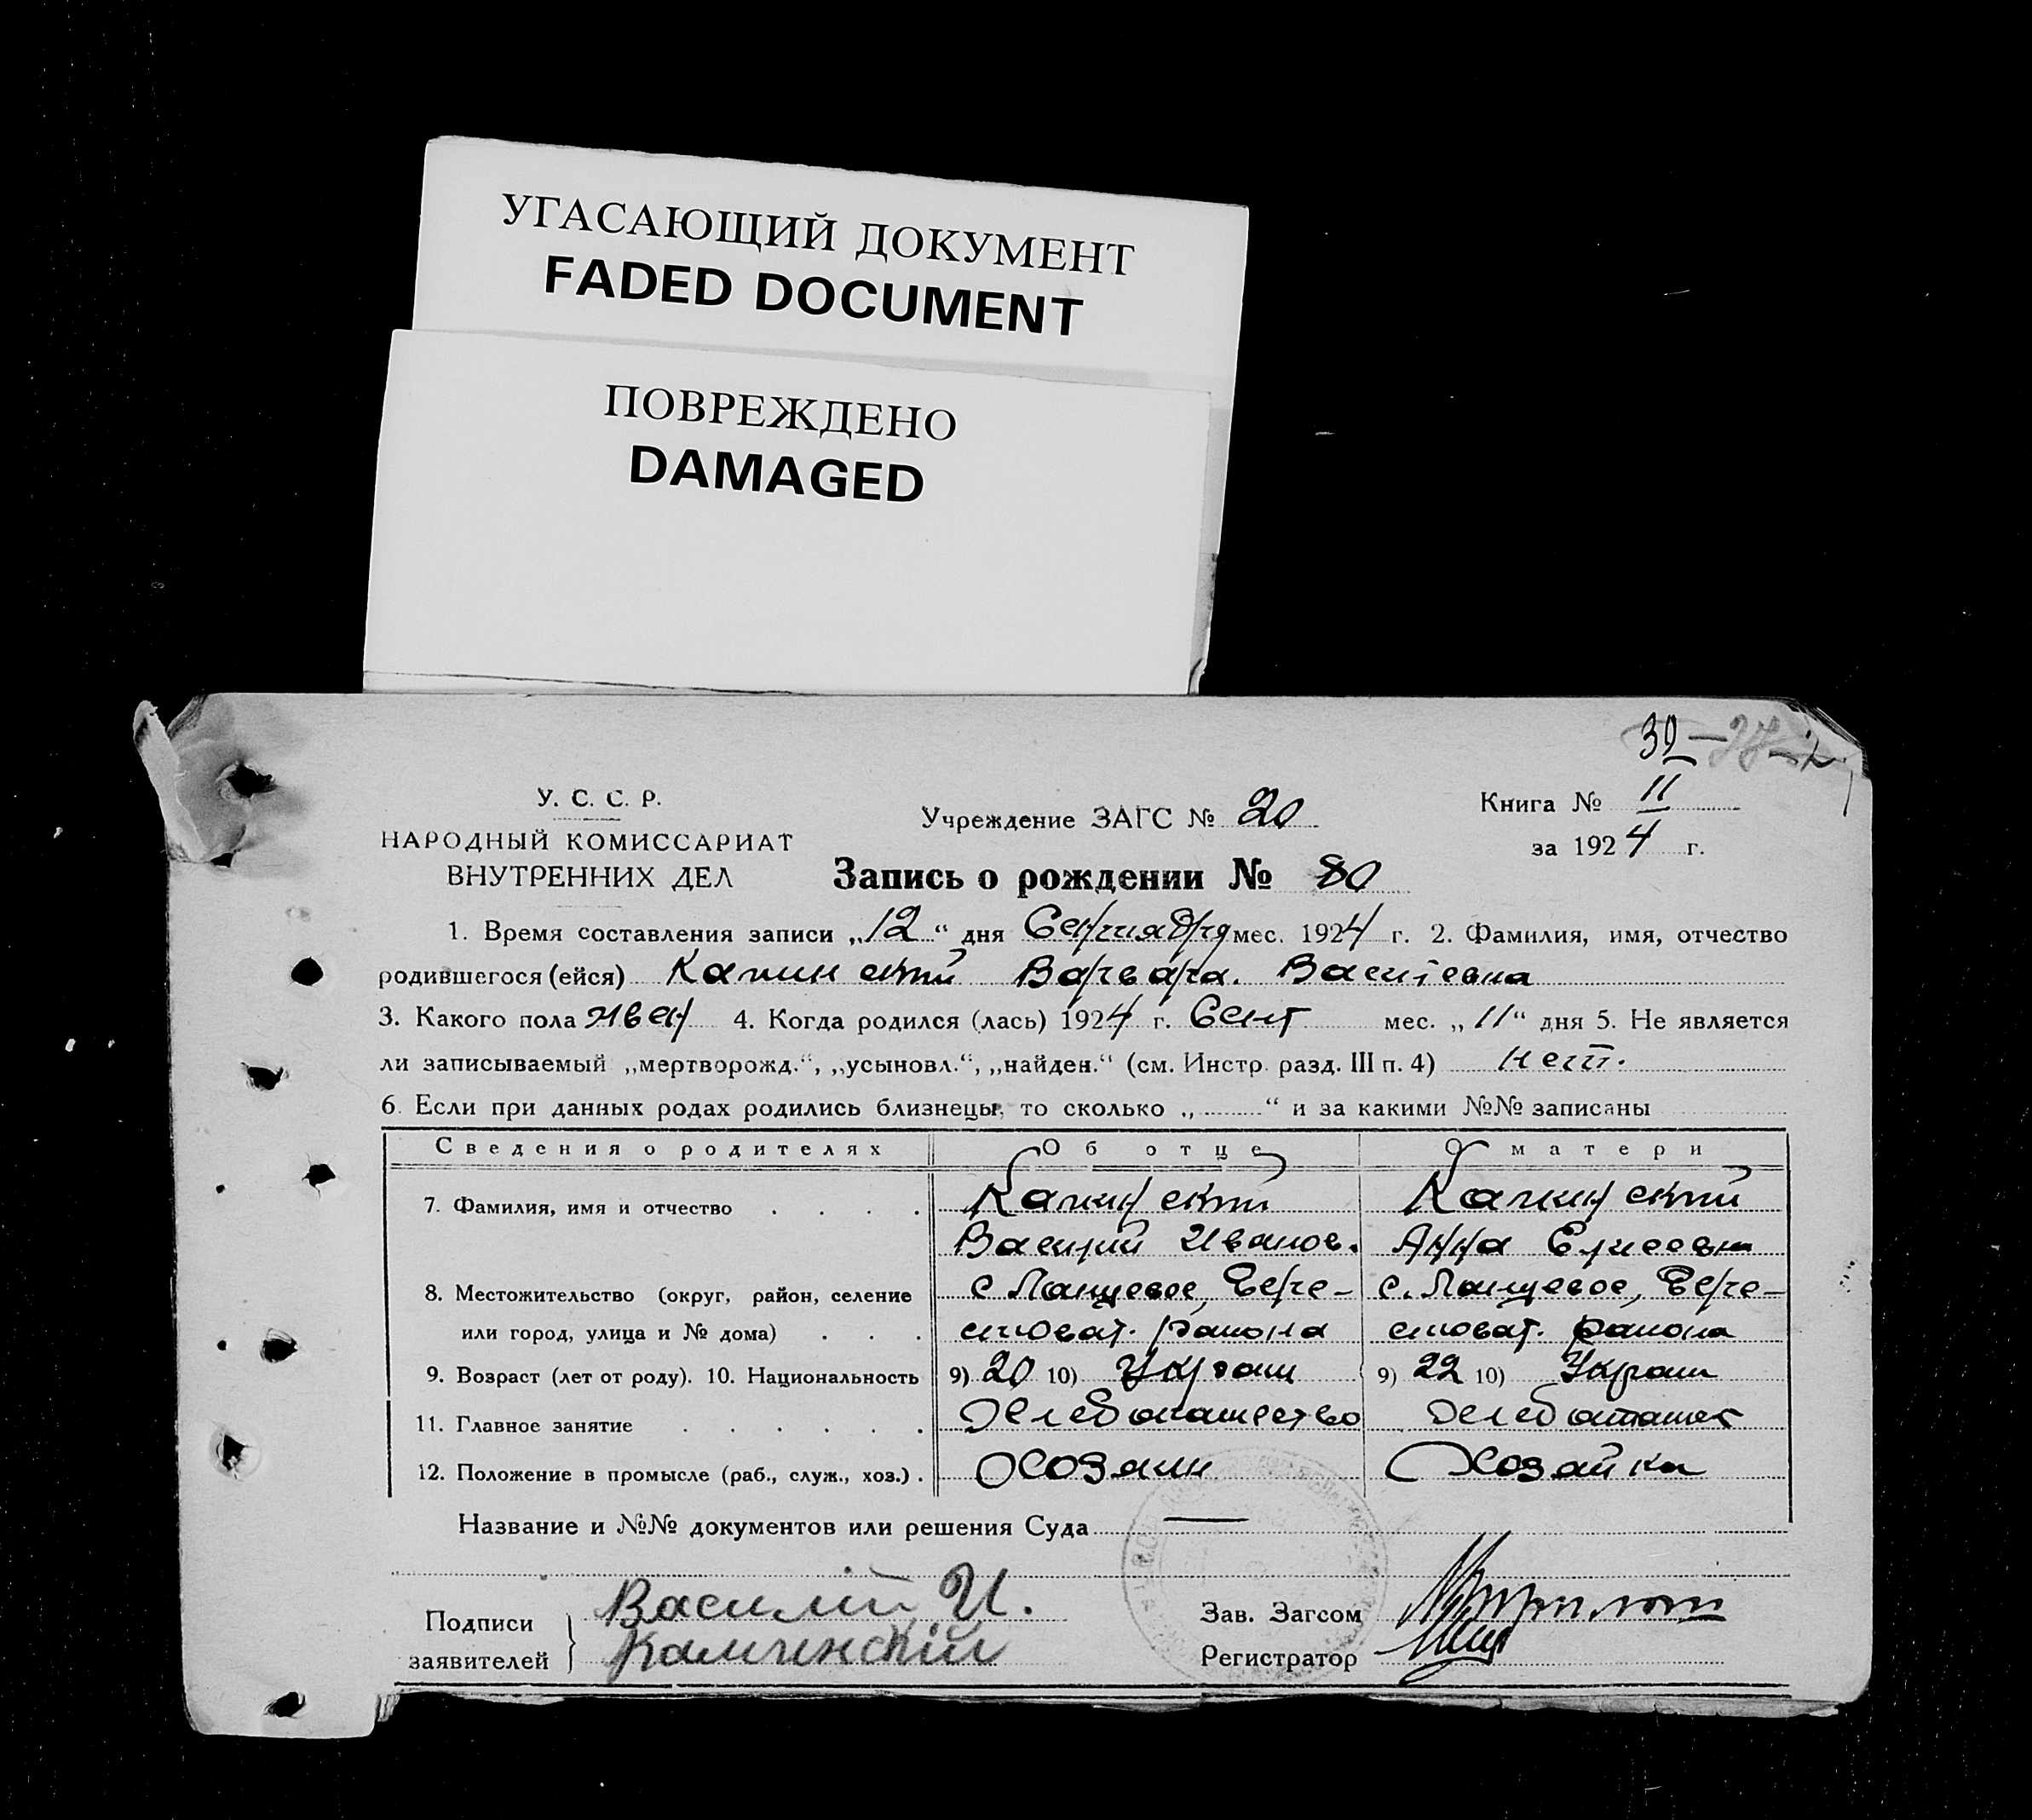 УГАСАЮЩИЙ ДОКУМЕНТ
FADED DOCUMENT
ПОВРЕЖДЕНО
DAMAGED
32
У. С. С. Р.
НАРОДНЫЙ КОМИССАРИАТ
ВНУТРЕННИХ ДЕЛ
Учреждение ЗАГС № 20
Книга № 11
за 1924 г.
Запись о рождении № 80
1. Время составления записи „12“ дня Сентября мес. 1924 г. 2. Фамилия, имя, отчество
родившегося (ейся) Варвара. Васильевна
3. Какого пола жен 4. Когда родился (лась) 1924 г. Сент мес. „11“ дня 5. Не является
ли записываемый „мертворожд.“, „усыновл.“, „найден.“ (см. Инстр. разд. III п. 4) нет.
6. Если при данных родах родились близнецы, то сколько „ “ и за какими №№ записаны
Сведения о родителях Об отце О матери
7. Фамилия, имя и отчество Калинский Калинский
Василий Иванов. Анна Елисеевна
8. Местожительство (округ, район, селение с. Ланцевое, Бере- с. Ланцевое, Бере-
или город, улица и № дома) стоват. района стоват. района
9. Возраст (лет от роду). 10. Национальность 9) 20 10) Украин 9) 22 10) Украин
11. Главное занятие Хлебопашество Хлебопашес
12. Положение в промысле (раб., служ., хоз.) Хозяин Хозяйка
Название и №№ документов или решения Суда —
Подписи заявителей Василий И.
Зав. Загсом
Регистратор